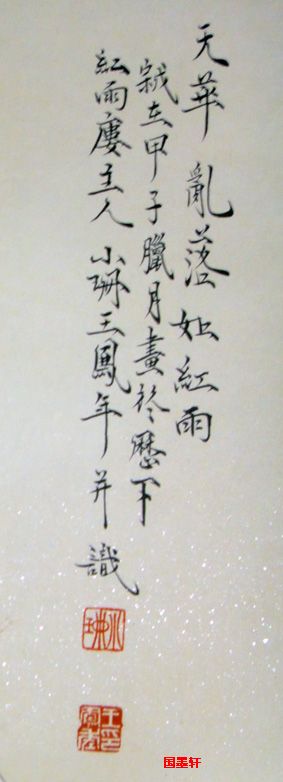 天華亂落如紅雨
歲在甲子臘月畫於歷下
紅雨廔主人小珊王鳳年并識
国墨轩